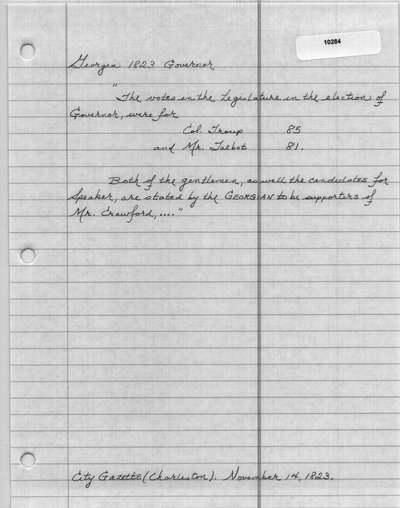 10284
Georgia 1823 Governor
"The votes in the Legislature in the election of
Governor, were for
Col. Troup 85
and Mr. Talbot 81.
Both of the gentlemen, as well the candidates for
Speaker, are stated by the GEORGIAN to be supporters of
Mr. Crawford, ...."
City Gazette (Charleston). November 14, 1823.